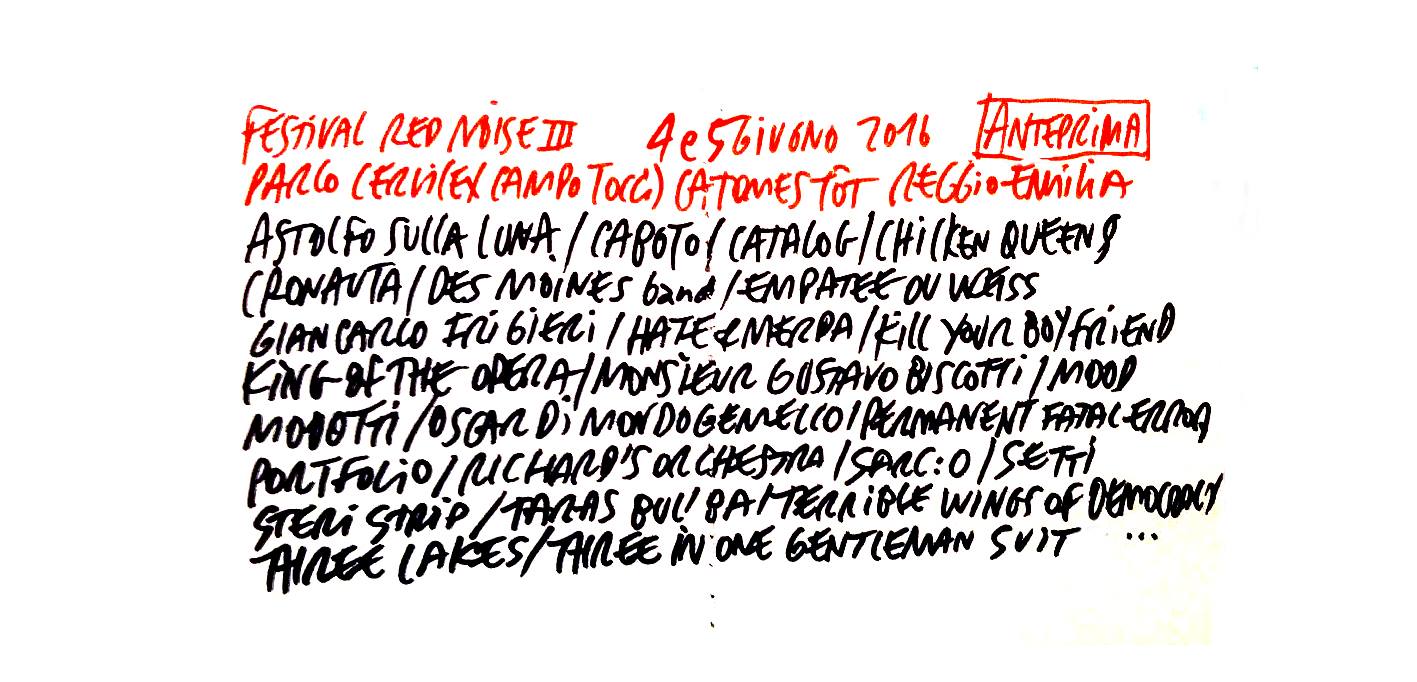 FESTIVAL RED NOISE III 4 e 5 GIUGNO 2016 ANTEPRIMA
PARCO CERVI (EX CAMPO TOCCI) CATOMES TÔT REGGIO EMILIA
ASTOLFO SULLA LUNA / CABOTO / CATALOG / CHICKEN QUEENS
CRONAUTA / DES MOINES band / EMPATEE DU WEISS
GIANCARLO FRIGIERI / HATE & MERDA / KILL YOUR BOYFRIEND
KING OF THE OPERA / MONSIEUR GUSTAVO BISCOTTI / MOOD
MODOTTI / OSCAR DI MONDOGEMELLO / PERMANENT FATAL ERROR
PORTFOLIO / RICHARD'S ORCHESTRA / SARC:O / SETTI
STERI STRIP / TARAS BUL'BA / TERRIBLE WINGS OF DEMOCRACY
THREE LAKES / THREE IN ONE GENTLEMAN SUIT ...